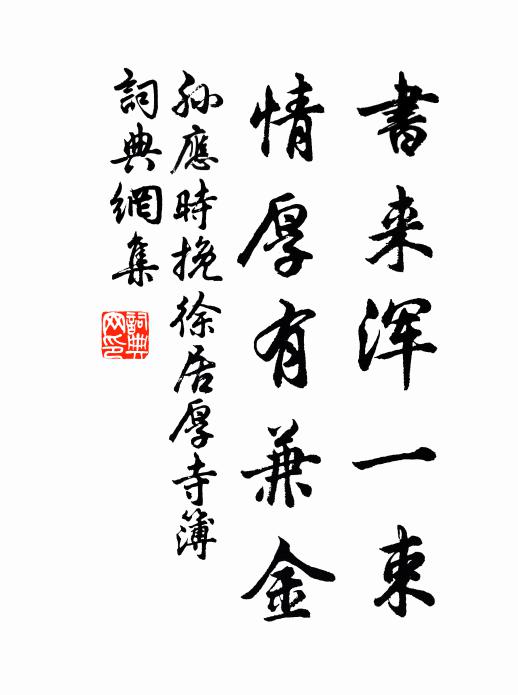 書来浑一束
情厚有兼金
孙應時挽徐居厚寺簿
詞典網集
詞典网印